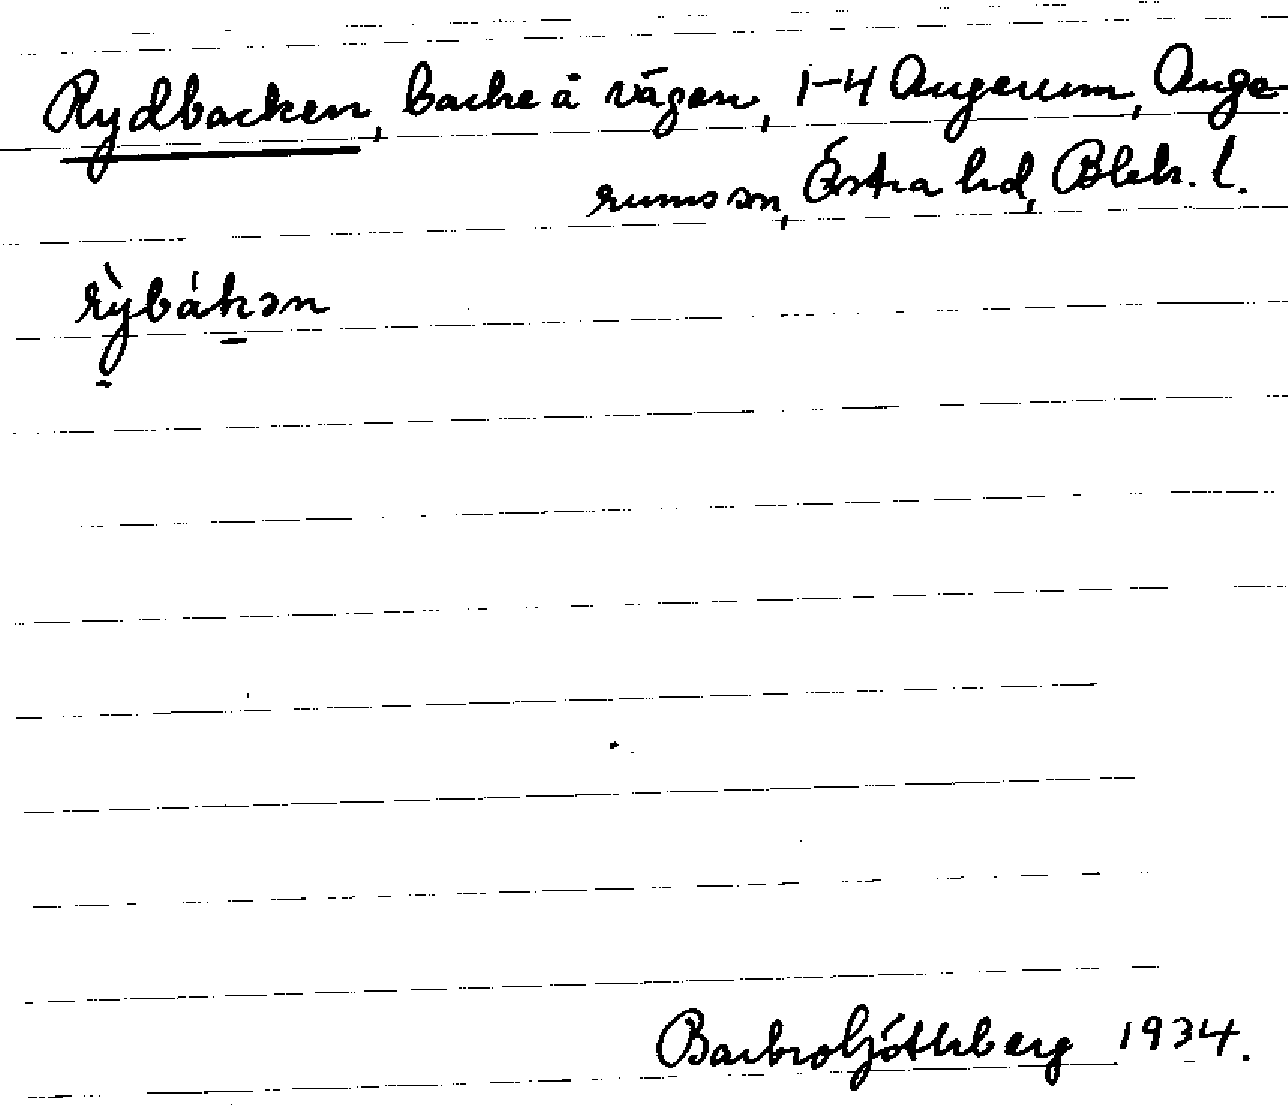 Rydbacken, backe å vägen, 1-4 Augerum, Auge-
rums sn, Östra hd, Blek. l.
rỳbákən
Barbro Göthberg 1934.